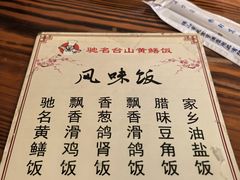 驰名台山黄鳝饭
风味饭
驰名黄鳝饭
飘香滑鸡饭
香葱鸽肾饭
飘香滑鸽饭
腊味豆角饭
家乡油盐饭